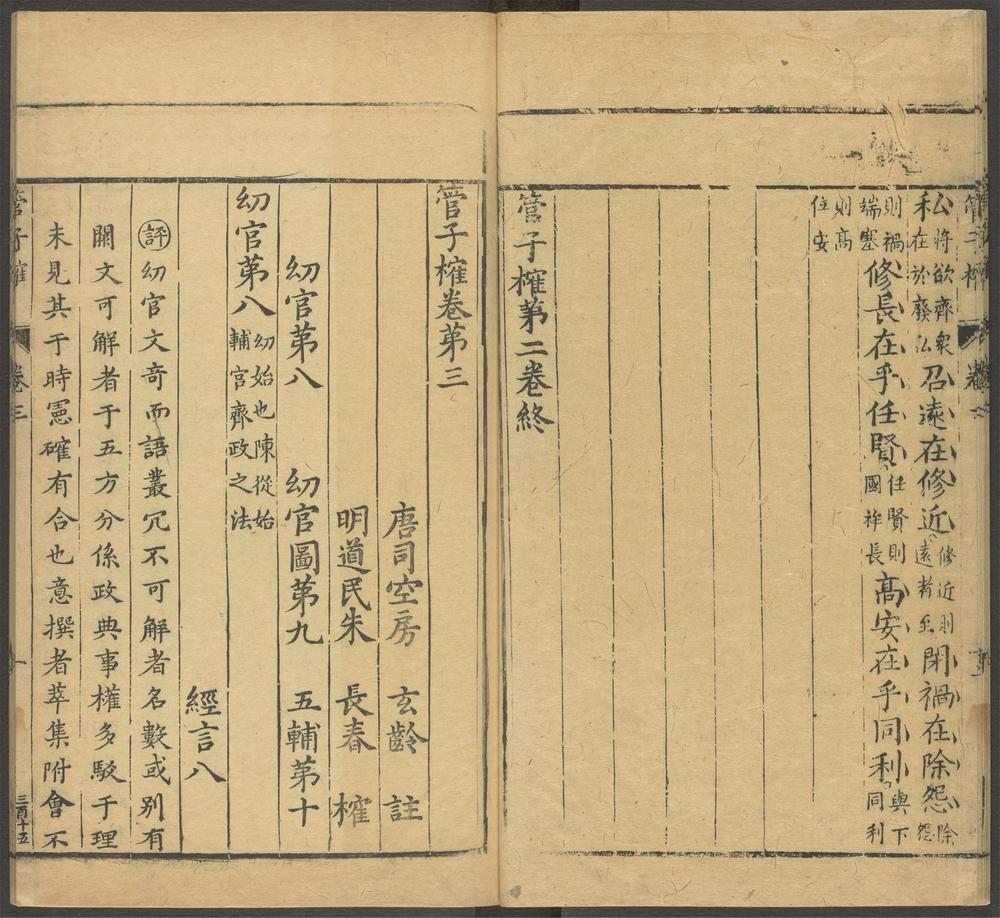 私將欲齊衆在於廢公召遠在修近修近則遠者至閑禍在除怨除怨
則禍端塞修長在乎任賢任賢則國祚長高安在乎同利與下同利
則高位安
管子榷第二卷終
管子榷卷第三
唐司空房 玄齡 註
明道民朱 長春 榷
幼官第八 幼官圖第九 五輔第十
幼官第八 幼始也陳從始輔官齊政之法
經言八
評 幼官文奇而語叢冗不可解者名數或别有
闕文可解者于五方分係政典事權多駁于理
未見其于時憲確有合也意撰者萃集附會不
管子榷 卷三 三百十五